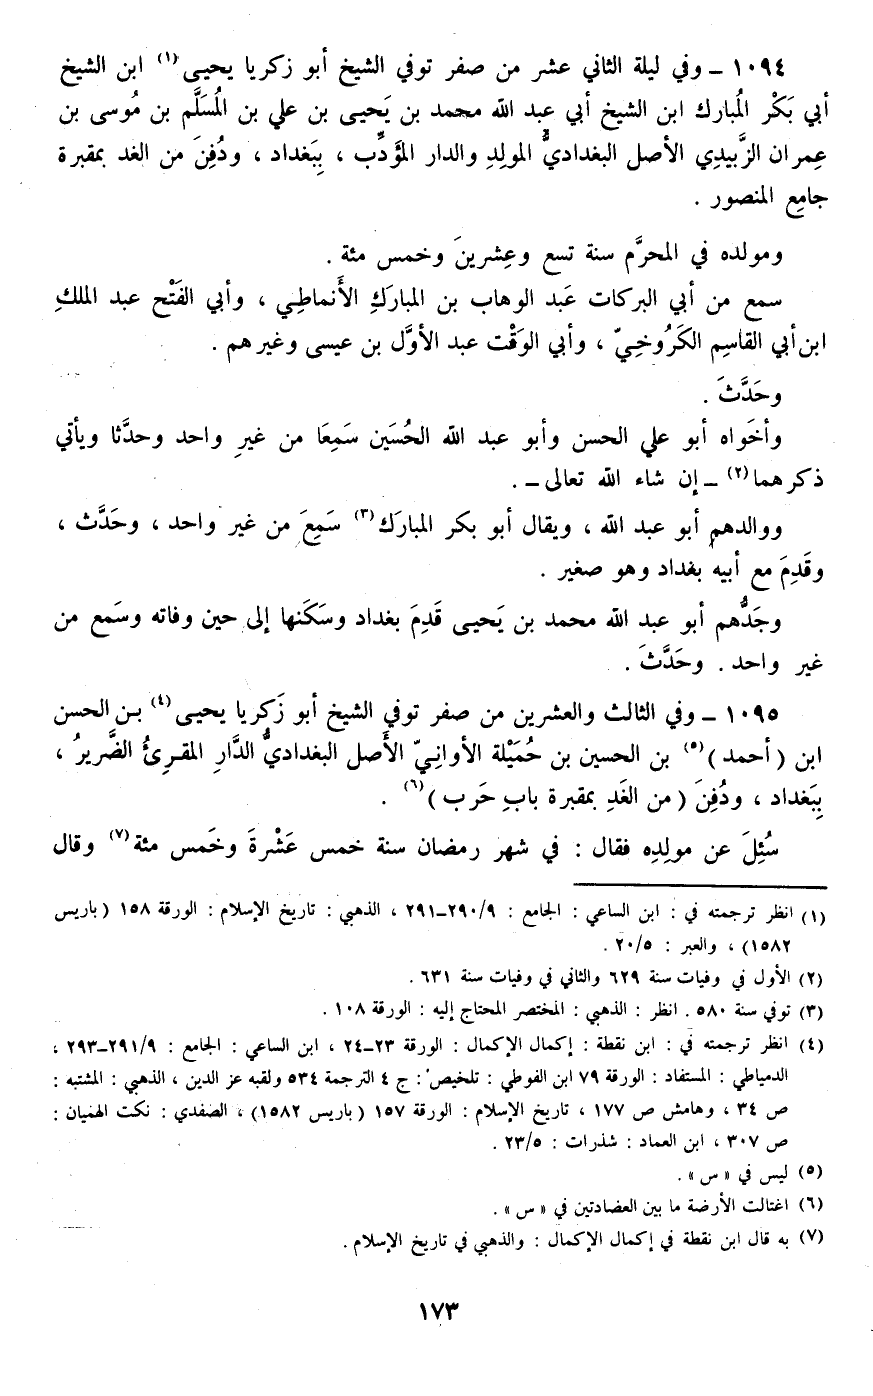 ١٠٩٤ ـ وفي ليلة الثاني عشر من صفر توفي الشيخ أبو زكريا يحيى(١) ابن الشيخ
أبي بَكْر المُبارك ابن الشيخ أبي عبد الله محمد بن يَحيى بن علي بن المُسَلَّم بن مُوسى بن
عِمران الزَّبيدِي الأصل البغداديُّ المولِدِ والدار المؤَدِّب ، بِبَغداد ، ودُفِنَ من الغد بمقبرة
جامِع المنصور .
ومولده في المحرَّم سنة تسع وعِشرينَ وخمس مئة .
سمع من أبي البركات عَبد الوهاب بن المبارَكِ الأَنماطِي ، وأبي الفَتْح عبد الملكِ
ابن أبي القاسِم الكَرُوخِيّ ، وأبي الوَقْت عبد الأوَّل بن عيسى وغيرهم .
وحَدَّثَ .
وأخَواه أبو علي الحسن وأبو عبد الله الحُسَين سَمِعَا من غيرِ واحد وحدَّثا ويأتي
ذكرهما(٢) ـ إن شاء الله تعالى ـ .
ووالدهم أبو عبد الله ، ويقال أبو بكر المبارَك(٣) سَمِعَ من غير واحد ، وحَدَّث ،
وقَدِمَ مع أبيه بغداد وهو صغير .
وجَدُّهم أبو عبد الله محمد بن يَحيى قَدِمَ بغداد وسَكَنها إلى حين وفاته وسَمع من
غير واحد . وحَدَّثَ .
١٠٩٥ ـ وفي الثالث والعشرين من صفر توفي الشيخ أبو زَكريا يحيى(٤) بن الحسن
ابن (أحمد)(٥) بن الحسين بن حُمَيْلة الأوانِيّ الأَصل البغداديُّ الدَّارِ المقرِئُ الضَّريرُ ،
بِبَغداد ، ودُفِنَ (من الغَدِ بمقبرة بابِ حَرب)(٦) .
سُئِلَ عن مولِدِه فقال : في شهر رمضان سنة خمس عَشْرةَ وخَمس مئة(٧) وقال
(١) انظر ترجمته في : ابن الساعي : الجامع : ٢٩٠/٩ـ٢٩١ ، الذهبي : تاريخ الإسلام : الورقة ١٥٨ (باريس
١٥٨٢) ، والعبر : ٢٠/٥ .
(٢) الأول في وفيات سنة ٦٢٩ والثاني في وفيات سنة ٦٣١ .
(٣) توفي سنة ٥٨٠ . انظر : الذهبي : المختصر المحتاج إليه : الورقة ١٠٨ .
(٤) انظر ترجمته في : ابن نقطة : إكمال الإكمال : الورقة ٢٣ـ٢٤ ، ابن الساعي : الجامع : ٢٩١/٩ـ٢٩٣ ،
الدمياطي : المستفاد : الورقة ٧٩ ابن الفوطي : تلخيص : ج ٤ الترجمة ٥٣٤ ولقبه عز الدين ، الذهبي : المشتبه :
ص ٣٤ ، وهامش ص ١٧٧ ، تاريخ الإسلام : الورقة ١٥٧ (باريس ١٥٨٢) ، الصفدي : نكت الهميان :
ص ٣٠٧ ، ابن العماد : شذرات : ٢٣/٥ .
(٥) ليس في « س » .
(٦) اغتالت الأرضة ما بين العضادتين في « س » .
(٧) به قال ابن نقطة في إكمال الإكمال : والذهبي في تاريخ الإسلام .
١٧٣